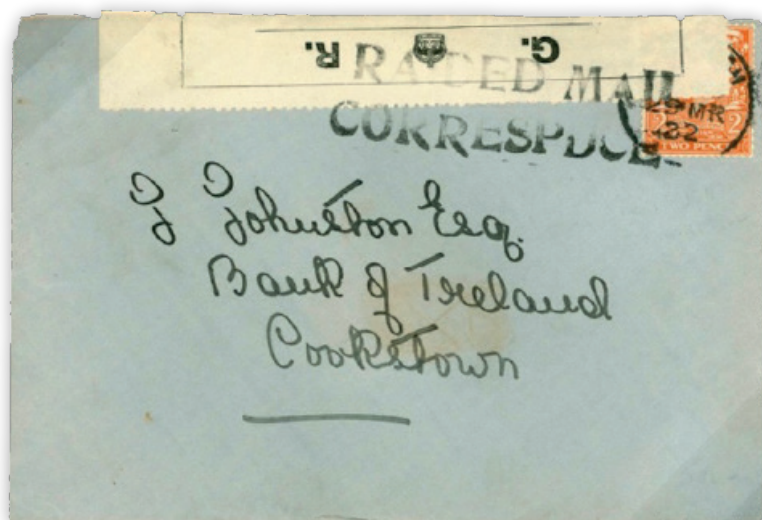 G. R.
RAIDED MAIL
CORRESPDCE
29 MR
22
2 2
TWO PENCE
J Johnston Esq.
Bank of Ireland
Cookstown